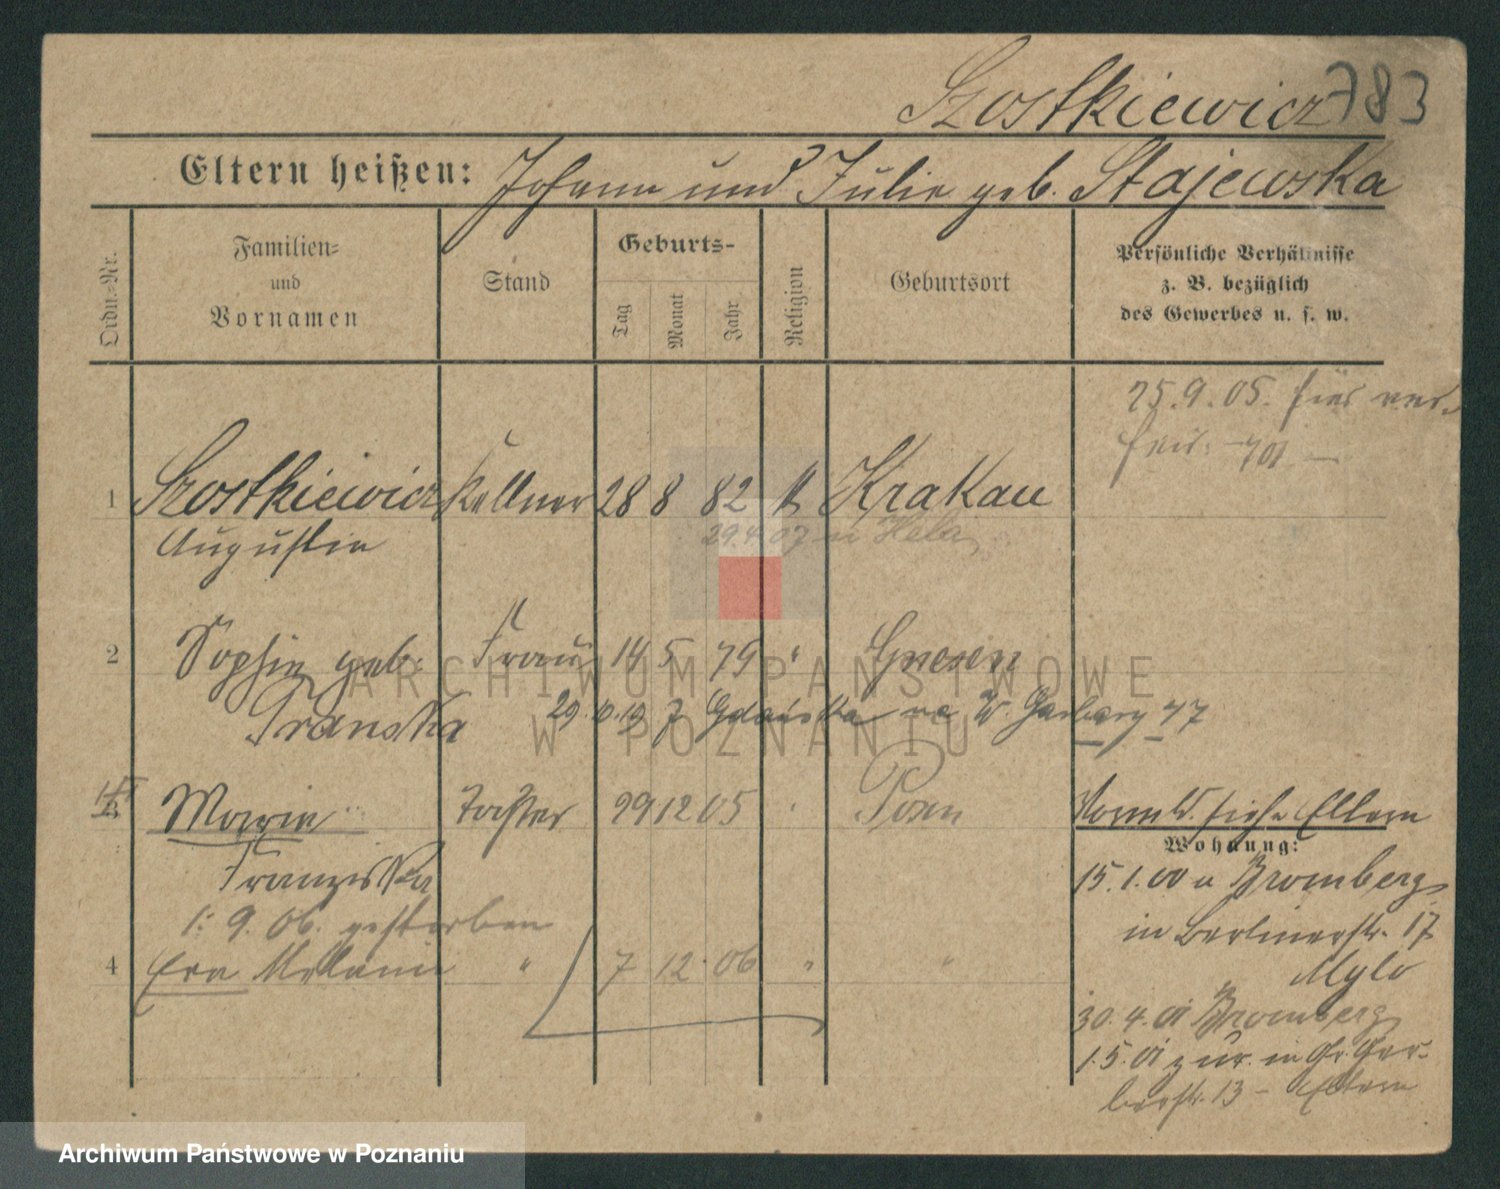 Szostkiewicz 783
Eltern heißen: Johann und Julie geb. Stajewska
Ordn.-Nr.
Familien-
und
Vornamen
Stand
Geburts-
Tag
Monat
Jahr
Religion
Geburtsort
Persönliche Verhältnisse
z. B. bezüglich
des Gewerbes u. s. w.
25.9.05. hier ver-
heir.
1 Szostkiewicz Kellner 28 8 82 k Krakau
Augustin
29.4.07 n Hela
2 Sophie geb. Frau 14 5 79 " Gnesen
Granska
29.10.19 z Gdańska na W. Garbary 47
3 Marie Tochter 29 12 05 " Posen
Franziska
1. 9. 06. gestorben
4 Eva Melanie " 7 12 06 " "
Vorm. W. siehe Eltern
Wohnung:
15.1.00 n Bromberg
in Berlinerstr. 17
Mylo
30.4.01 Bromberg
1.5.01 zur. in Gr. Ger-
berstr. 13 - Eltern
ARCHIWUM PAŃSTWOWE
W POZNANIU
Archiwum Państwowe w Poznaniu